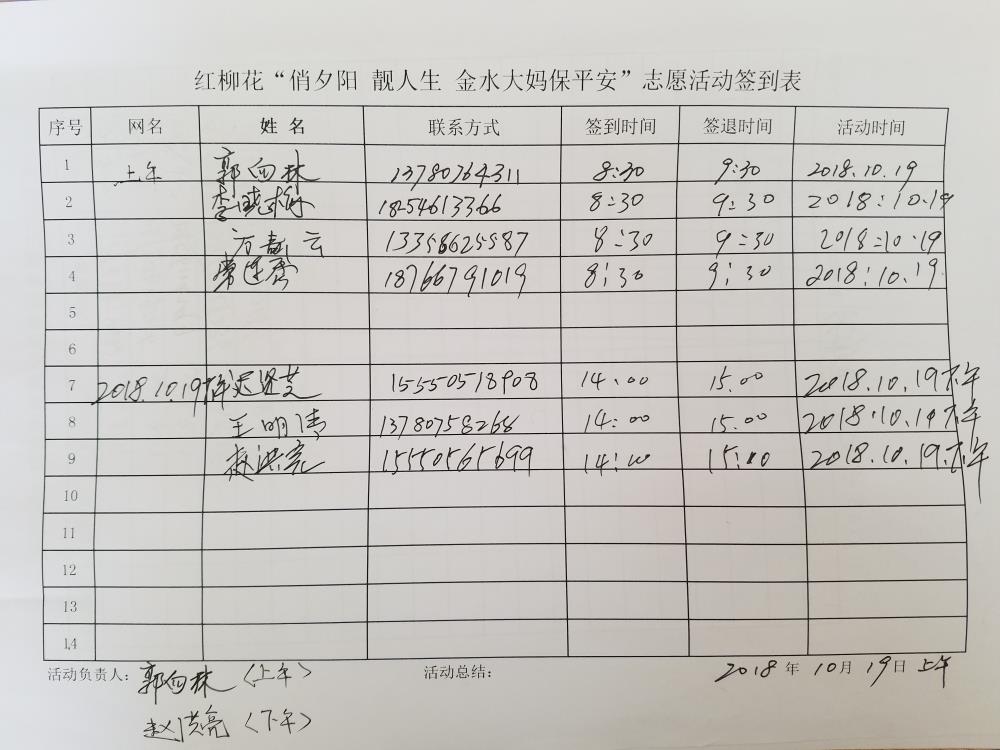 红柳花“俏夕阳 靓人生 金水大妈保平安”志愿活动签到表
序号 网名 姓名 联系方式 签到时间 签退时间 活动时间
1 上午 郭向林 13780764311 8:30 9:30 2018.10.19
2 18254613366 8:30 9:30 2018:10.19
3 方 云 13356625587 8:30 9:30 2018:10.19
4 常 18766791019 8:30 9:30 2018:10.19.
5
6
7 2018.10.19下午 15550518908 14:00 15.00 2018.10.19下午
8 王明倩 13780758268 14:00 15.00 2018.10.19下午
9 赵洪亮 15550565699 14:00 15:00 2018.10.19.下午
10
11
12
13
14
活动负责人: 郭向林(上午) 活动总结: 2018年10月19日上午
赵洪亮(下午)